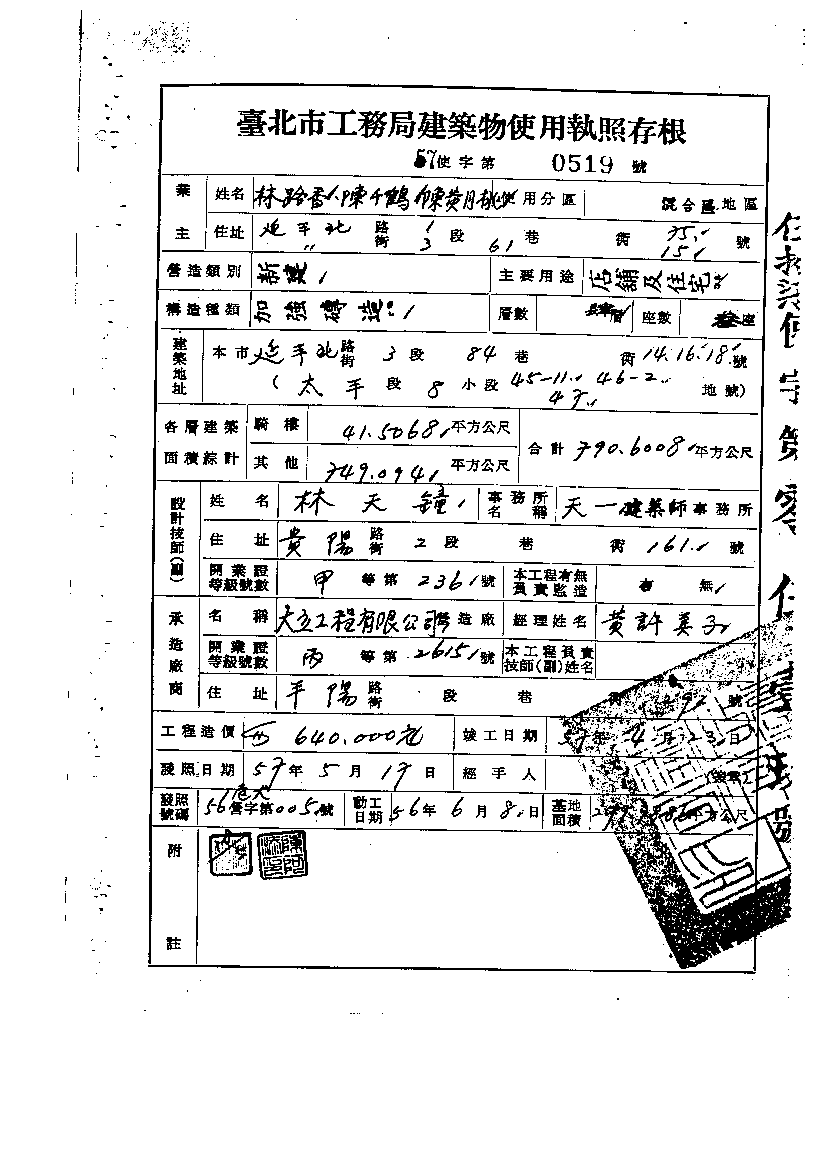 臺北市工務局建築物使用執照存根
57使字第 0519 號
業主 姓名 林 陳千鶴 陳黃月桃 使用分區 混合區地區
住址 延平北路街 1 3 段 61 巷 街 75 151 號
營造類別 新建 主要用途 店舖及住宅
構造種類 加強磚造 層數 肆層 座數 叁座
建築地址 本市延平北路街 3 段 84 巷 街 14.16.18. 號
( 太平段 8 小段 45-11 46-2 47 地號)
各層建築面積綜計 騎樓 41.5068 平方公尺 合計 790.6008 平方公尺
其他 749.094 平方公尺
設計技師(副) 姓名 林天鐘 事務所名稱 天一建築師事務所
住址 貴陽路街 2 段 巷 街 161 號
開業證等級號數 甲 等第 236 號 本工程有無負責監造 有 無
承造廠商 名稱 大立工程有限公司營造廠 經理姓名 黃許美
開業證等級號數 丙 等第 2615 號 本工程負責技師(副)姓名
住址 平陽路街 段 巷 街 號
工程造價 640.000元 竣工日期 57年4月23日
發照日期 57年5月17日 經手人 (蓋章)
發照號碼 56營字第005號 動工日期 56年6月8日 基地面積 平方公尺
附註